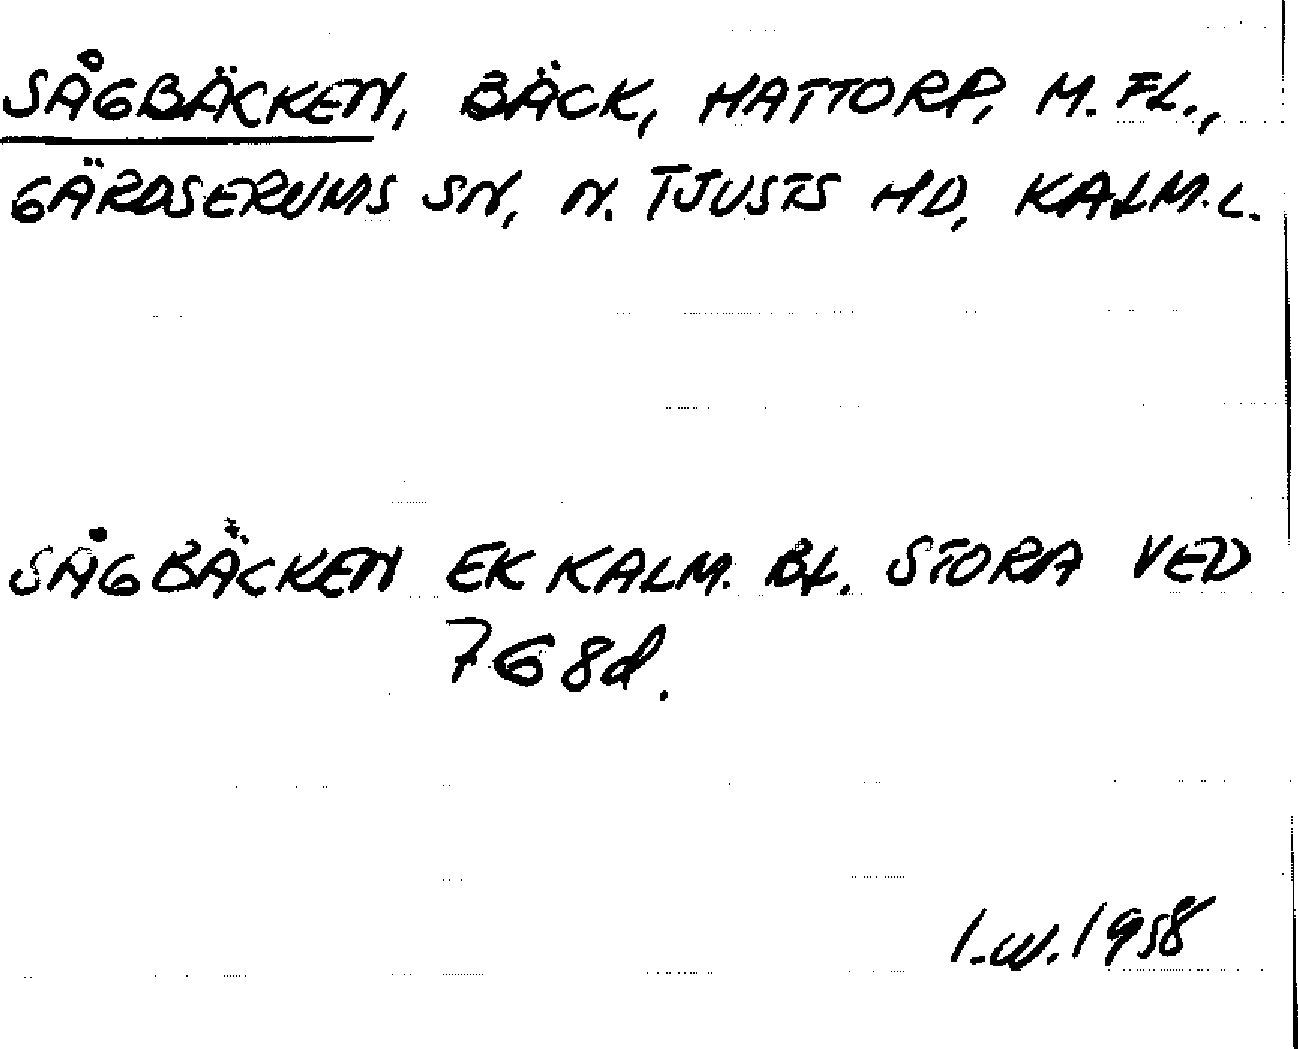 SÅGBÄCKEN, BÄCK, HATTORP, M. FL.,
GÄRDSERUMS SN, N. TJUSTS HD, KALM. L.
SÅGBÄCKEN EK KALM. BL. STORA VED
768d.
I.W. 1958